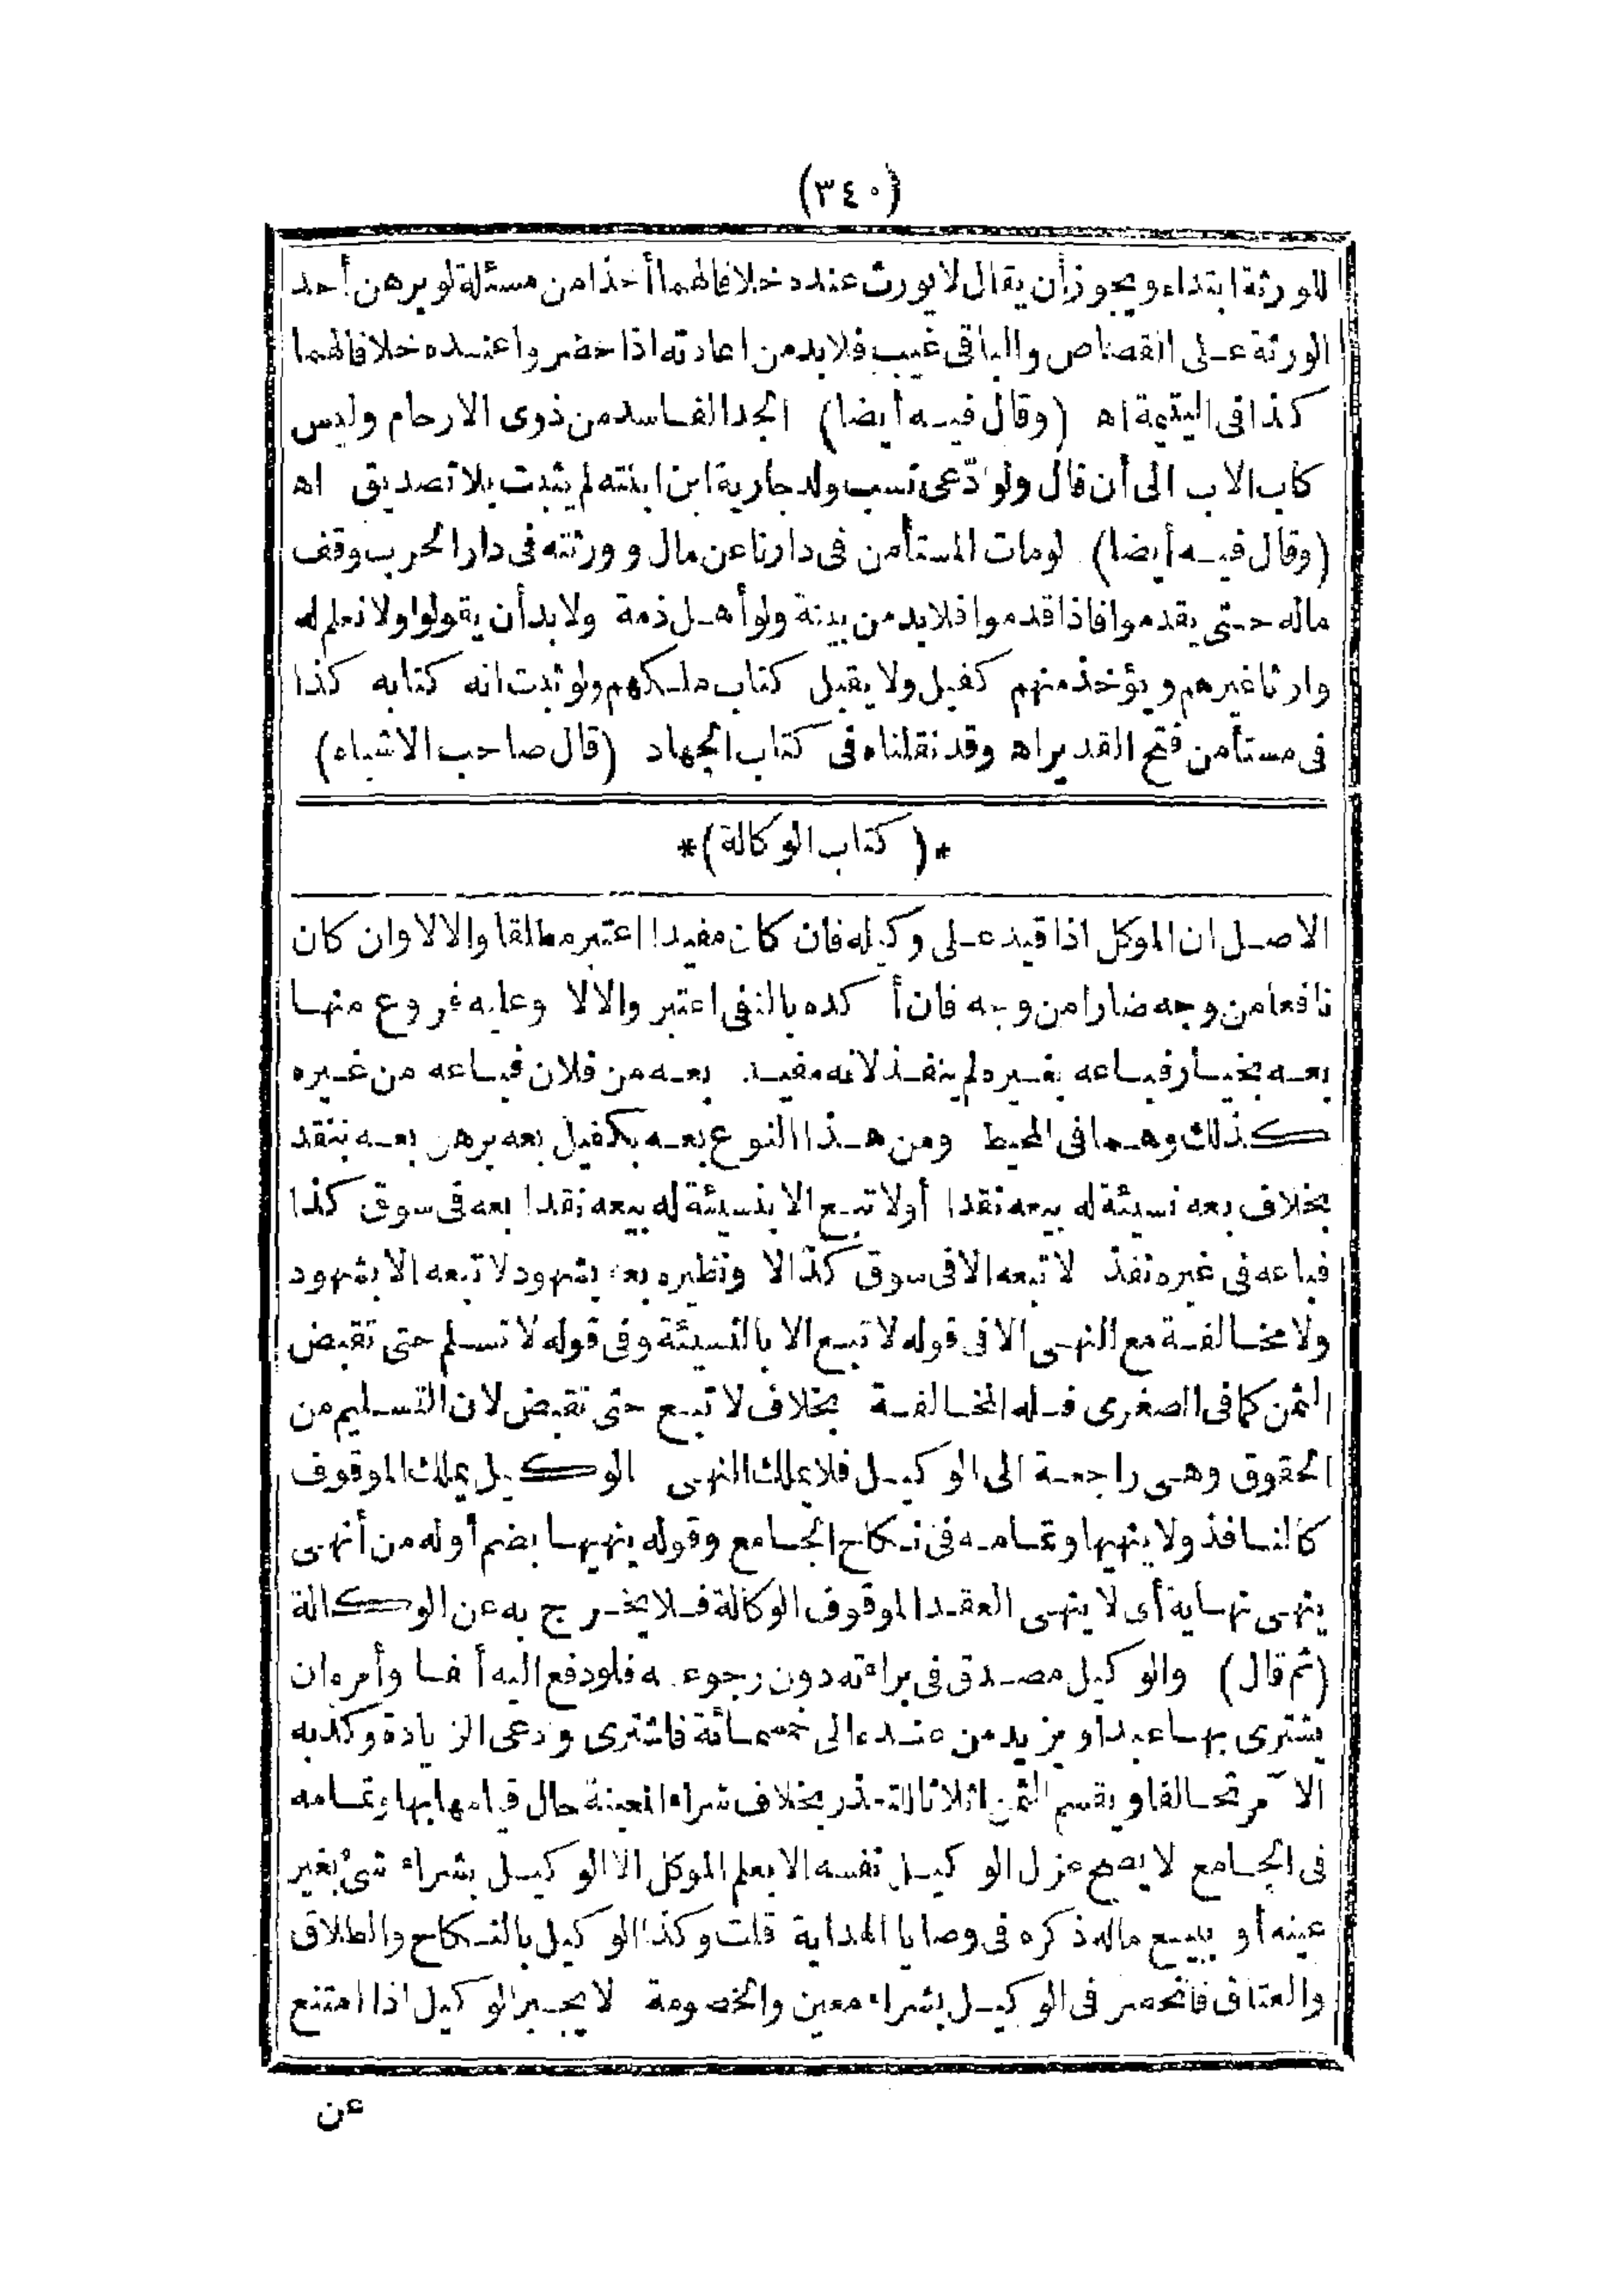 (٣٤٠)
للورثة ابتداء ويجوز أن يقال لا يورث عنده خلافا لهما أخذا من مسئلة لو برهن أحد
الورثة على القصاص والباقى غيب فلا بد من اعادته اذا حضروا عنده خلافا لهما
كذا فى اليتيمة اه (وقال فيه أيضا) الجد الفاسد من ذوى الارحام وليس
كاب الاب الى أن قال ولو ادّعى نسب ولد جارية ابن ابنته لم يثبت بلا تصديق اه
(وقال فيه أيضا) لو مات المستأمن فى دارنا عن مال وورثته فى دار الحرب وقف
ماله حتى يقدموا فاذا قدموا فلا بد من بينة ولو أهل ذمة ولا بد أن يقولوا ولا نعلم له
وارثا غيرهم ويؤخذ منهم كفيل ولا يقبل كتاب ملكهم ولو ثبت انه كتابه كذا
فى مستأمن فتح القدير اه وقد نقلناه فى كتاب الجهاد (قال صاحب الاشباه)
*(كتاب الوكالة)*
الاصل ان الموكل اذا قيد على وكيله فان كان مفيدا اعتبر مطلقا والا لا وان كان
نافعا من وجه ضارا من وجه فان أكده بالنفى اعتبر والا لا وعليه فروع منها
بعه بخيار فباعه بغيره لم ينفذ لانه مفيد. بعه من فلان فباعه من غيره
كذلك وهما فى المحيط ومن هذا النوع بعه بكفيل بعه برهن بعه بنقد
بخلاف بعه نسيئة له بيعه نقدا أو لا تبع الا بنسيئة له بيعه نقدا بعه فى سوق كذا
فباعه فى غيره نفذ لا تبعه الا فى سوق كذا لا ونظيره بعه بشهود لا تبعه الا بشهود
ولا مخالفة مع النهى الا فى قوله لا تبع الا بالنسيئة وفى قوله لا تسلم حتى تقبض
الثمن كما فى الصغرى فله المخالفة بخلاف لا تبع حتى تقبض لان التسليم من
الحقوق وهى راجعة الى الوكيل فلا يملك النهى الوكيل يملك الموقوف
كالنافذ ولا ينهيها وتمامه فى نكاح الجامع وقوله ينهيها بضم أوله من أنهى
ينهى نهاية أى لا ينهى العقد الموقوف الوكالة فلا يخرج به عن الوكالة
(ثم قال) والوكيل مصدق فى براءته دون رجوعه فلو دفع اليه ألفا وأمره ان
يشترى بها عبدا ويزيد من عنده الى خمسمائة فاشترى وادعى الزيادة وكذبه
الآمر تحالفا ويقسم الثمن اثلاثا للتعذر بخلاف شراء المعينة حال قيامها بها وتمامه
فى الجامع لا يصح عزل الوكيل نفسه الا بعلم الموكل الا الوكيل بشراء شئ بغير
عينه أو ببيع ماله ذكره فى وصايا الهداية قلت وكذا الوكيل بالنكاح والطلاق
والعتاق فانحصر فى الوكيل بشراء معين والخصومة لا يجبر الوكيل اذا امتنع
عن